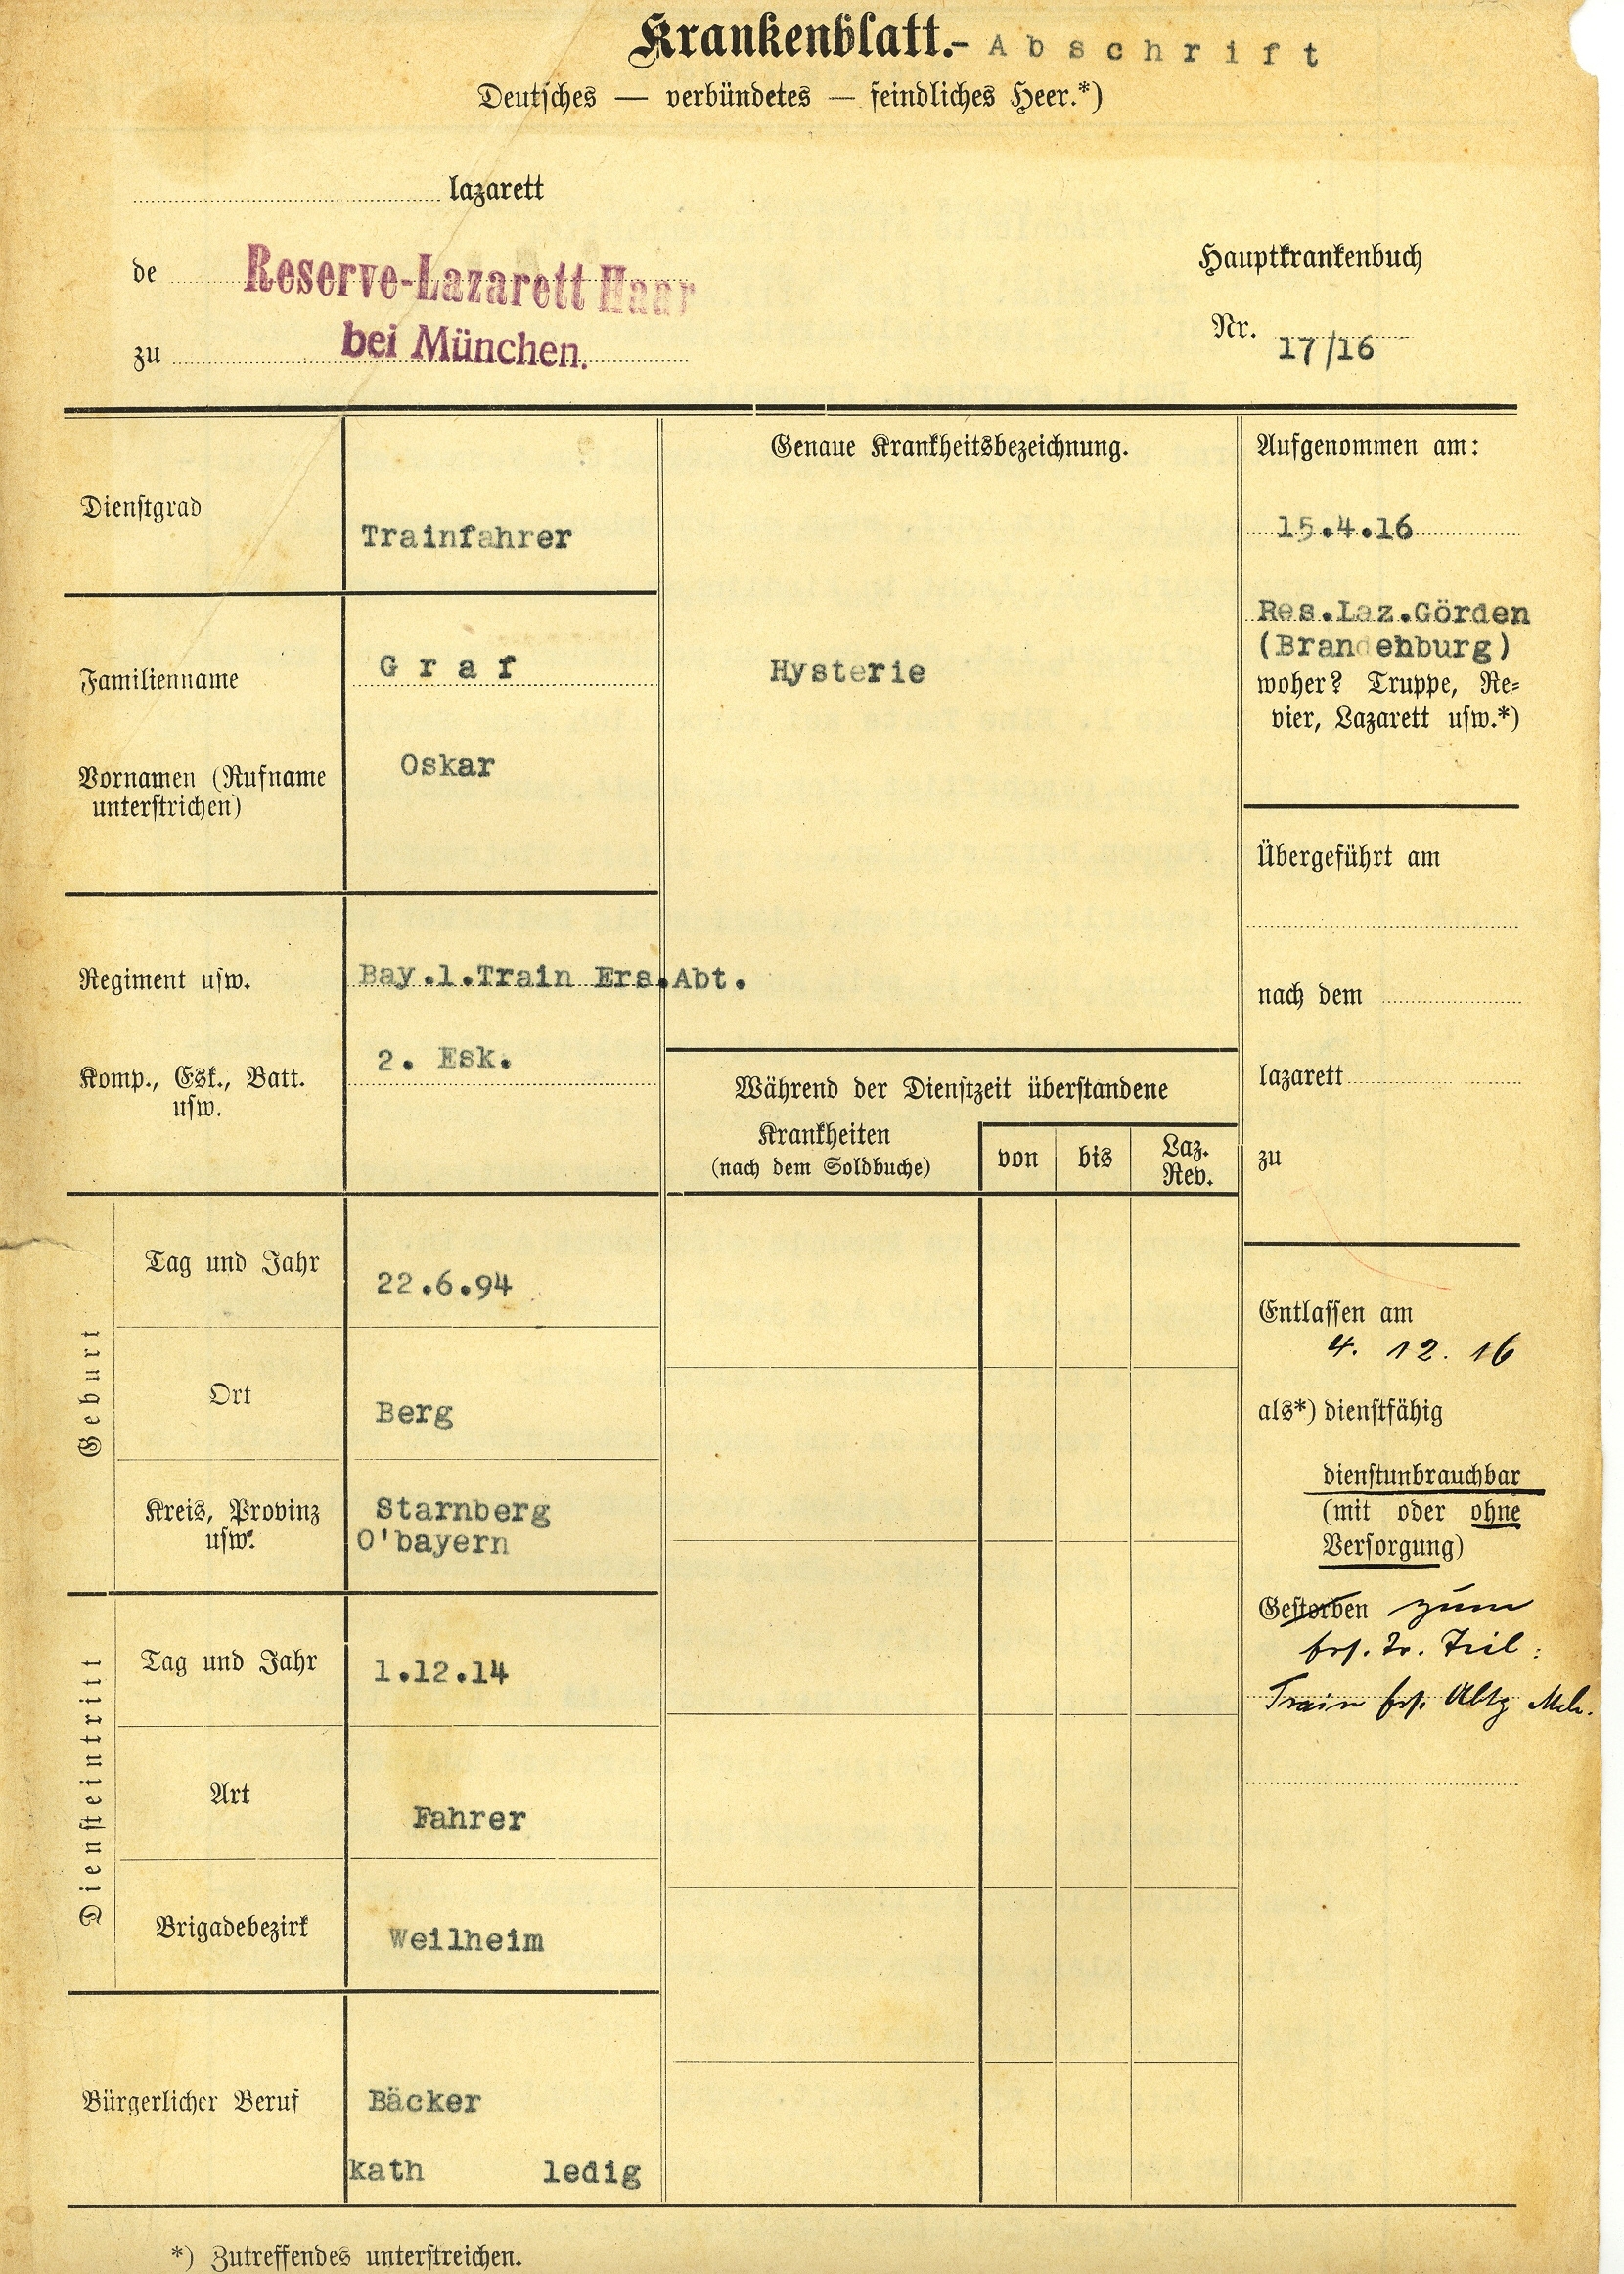 Krankenblatt.- Abschrift
Deutsches — verbündetes — feindliches Heer.*)
lazarett
de Reserve-Lazarett Haar
zu bei München.
Hauptkrankenbuch
Nr. 17/16
Dienstgrad
Trainfahrer
Familienname
Graf
Vornamen (Rufname
unterstrichen)
Oskar
Regiment usw.
Bay.1.Train Ers.Abt.
Komp., Esk., Batt.
usw.
2. Esk.
Geburt
Tag und Jahr
22.6.94
Ort
Berg
Kreis, Provinz
usw.
Starnberg
O'bayern
Diensteintritt
Tag und Jahr
1.12.14
Art
Fahrer
Brigadebezirk
Weilheim
Bürgerlicher Beruf
Bäcker
kath ledig
Genaue Krankheitsbezeichnung.
Hysterie
Während der Dienstzeit überstandene
Krankheiten
(nach dem Soldbuche)
von
bis
Laz.
Rev.
Aufgenommen am:
15.4.16
Res.Laz.Görden
(Brandenburg)
woher? Truppe, Re-
vier, Lazarett usw.*)
Übergeführt am
nach dem
lazarett
zu
Entlassen am
4. 12. 16
als*) dienstfähig
dienstunbrauchbar
(mit oder ohne
Versorgung)
Gestorben zum
Ers. Tr. Teil:
Train Ers. Abtg Mch.
*) Zutreffendes unterstreichen.